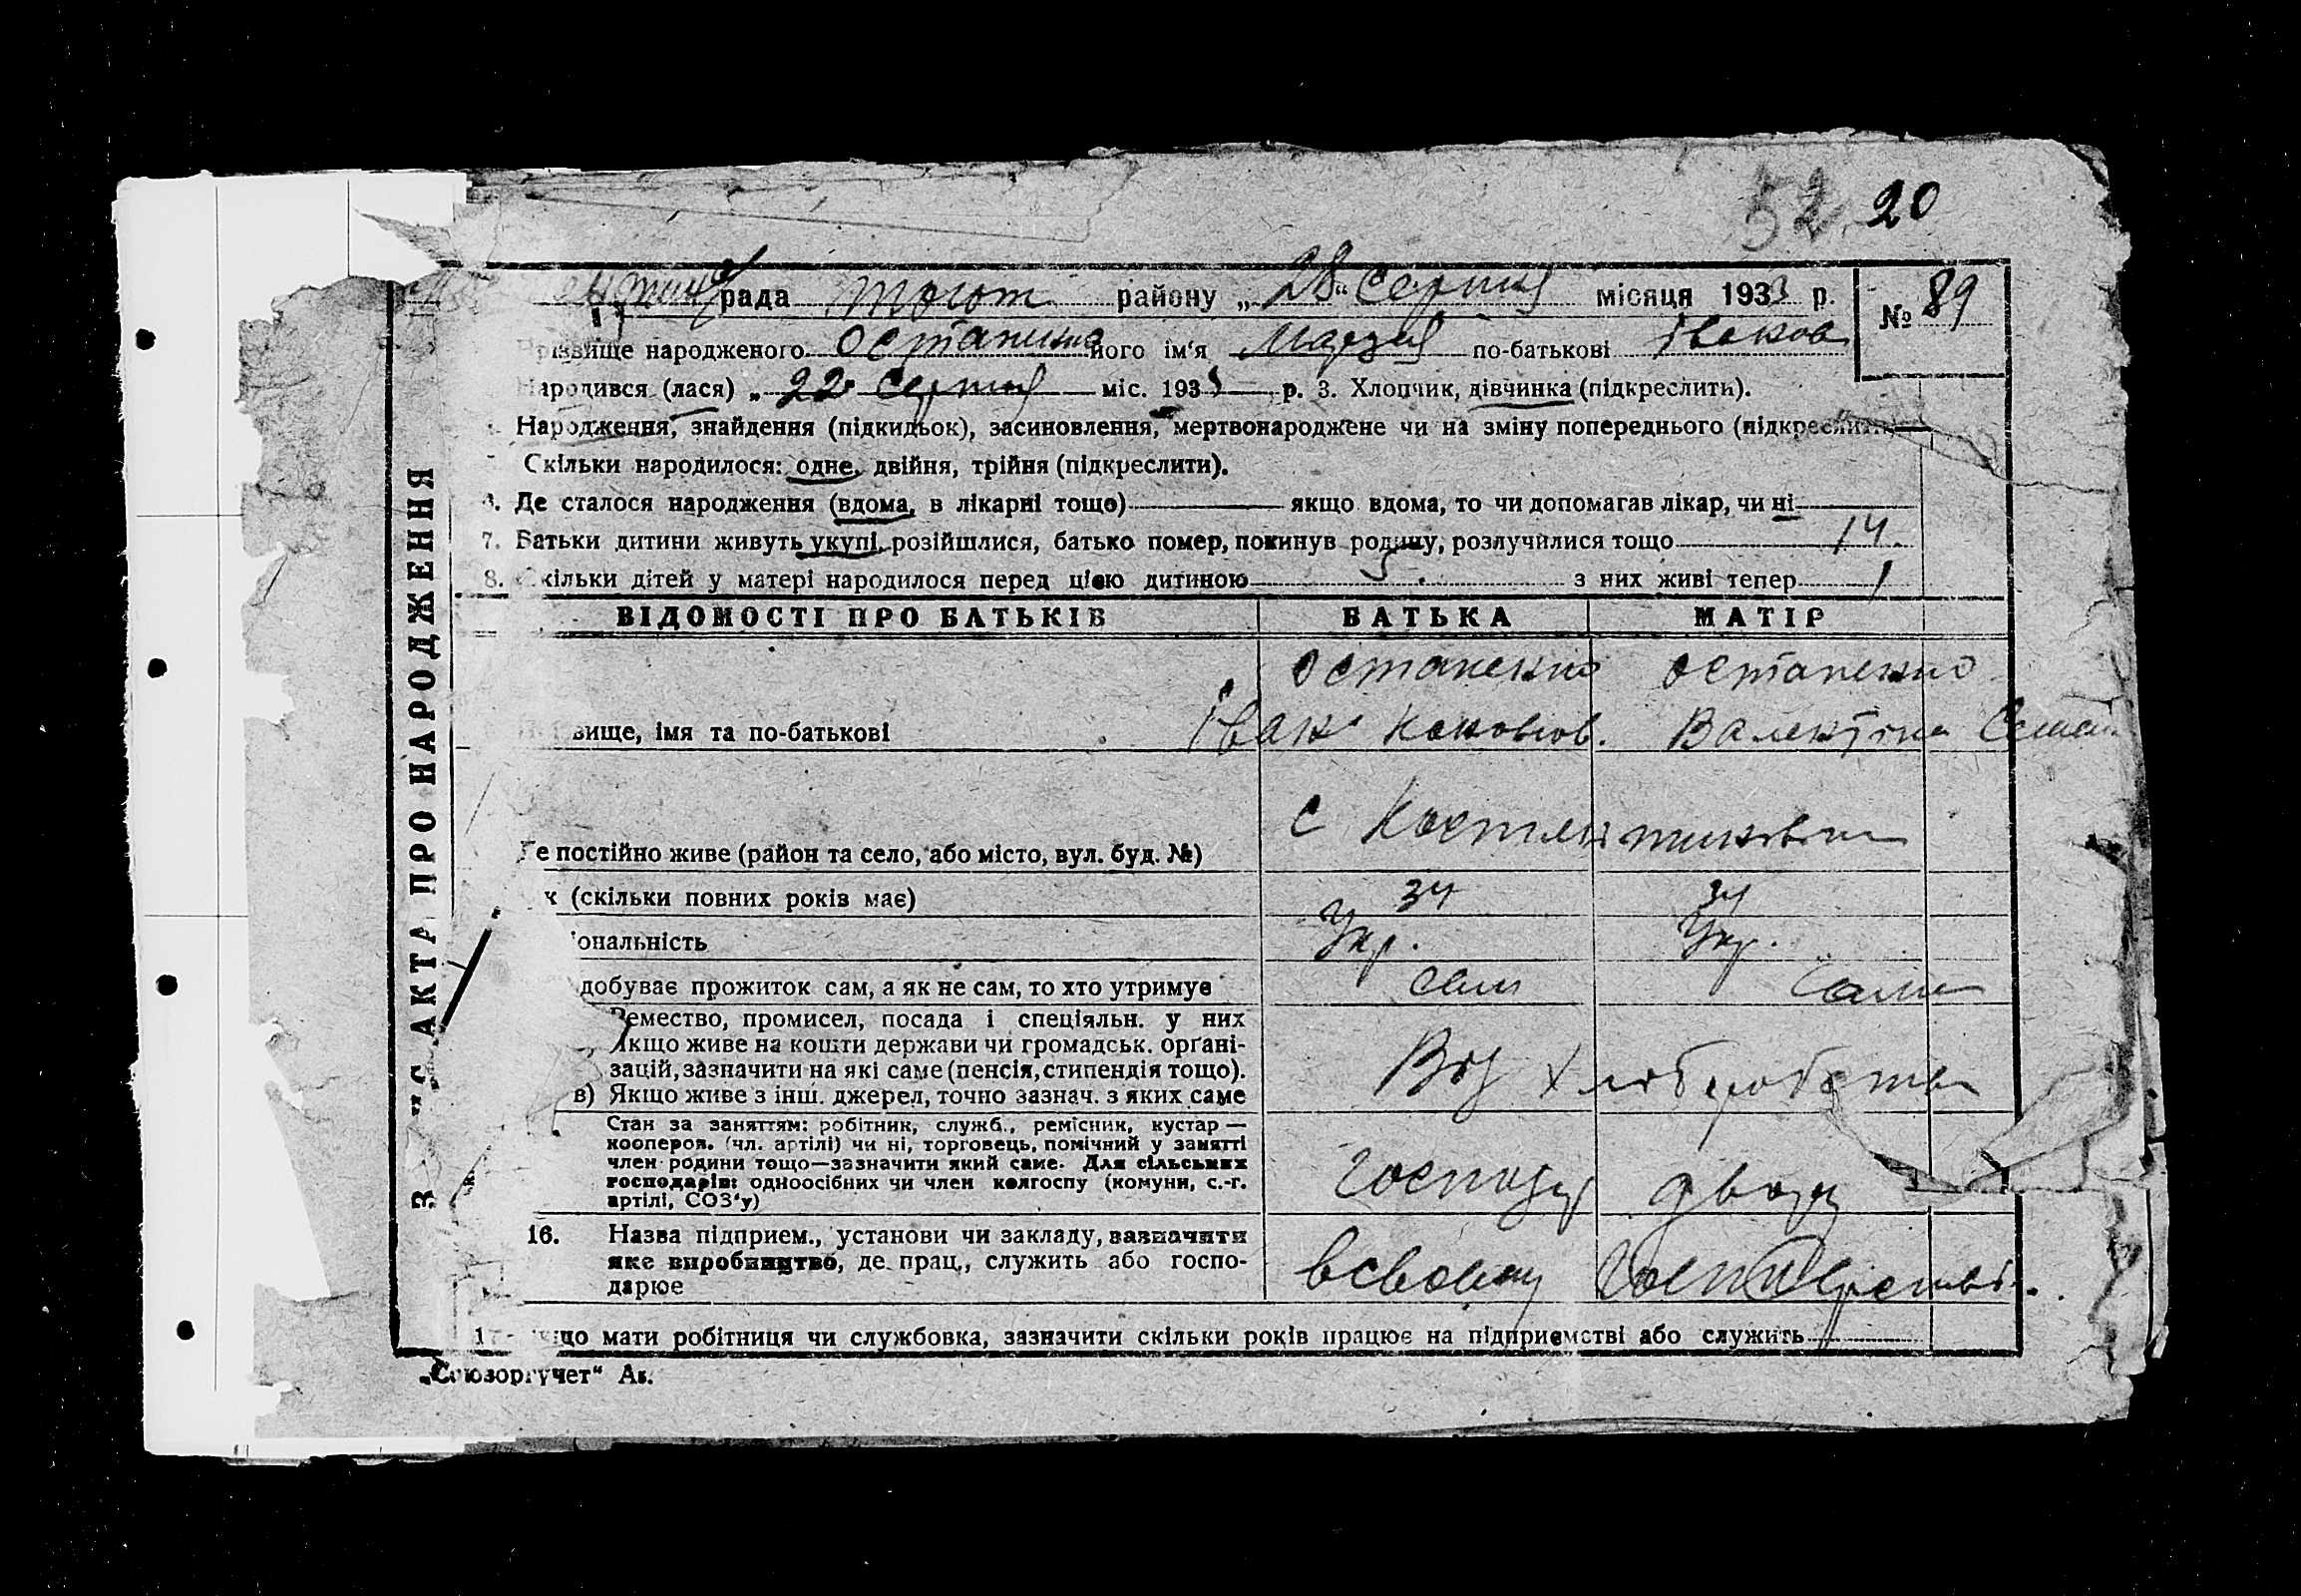 52 20
рада районy „28“ Серпня місяця 1933 р. № 89
Прізвище народженого Остапенко його ім‘я Марія по-батькові Іванов
Народився (лася) „22 Серпня міс. 193 р. 3. Хлопчик, дівчинка (підкреслити).
Народження, знайдення (підкидьок), засиновлення, мертвонароджене чи на зміну попереднього (підкреслити)
Скільки народилося: одне, двійня, трійня (підкреслити).
6. Де сталося народження (вдома, в лікарні тощо) якщо вдома, то чи допомагав лікар, чи ні
7. Батьки дитини живуть укупі, розійшлися, батько помер, покинув родину, розлучилися тощо 14.
8. Скільки дітей у матері народилося перед цією дитиною 5. з них живі тепер 1
ВІДОМОСТІ ПРО БАТЬКІВ БАТЬКА МАТІР
Остапенко Остапенко
вище, імя та по-батькові Іван Валентіна
Де постійно живе (район та село, або місто, вул. буд. №) с
к (скільки повних років має) 34 34
іональність Укр. Укр.
добуває прожиток сам, а як не сам, то хто утримує сам сама
Ремество, промисел, посада і спеціяльн. у них
Якщо живе на кошти держави чи громадськ. органі-
зацій, зазначити на які саме (пенсія, стипендія тощо).
в) Якщо живе з інш. джерел, точно зазнач. з яких саме Від хліборобства
Стан за заняттям: робітник, служб., ремісник, кустар —
коопером. (чл. артілі) чи ні, торговець, помічний у занятті
член родини тощо—зазначити який саме. Для сільських
господарів: одноосібних чи член колгоспу (комуни, с.-г.
артілі, СОЗ‘у) господар двора
16. Назва підприєм., установи чи закладу, зазначити
яке виробництво, де прац., служить або госпо-
дарює всвойому господарстві.
17. Якщо мати робітниця чи службовка, зазначити скільки років працює на підприємстві або служить
„Союзоргучет“
З АКТА ПРО НАРОДЖЕННЯ